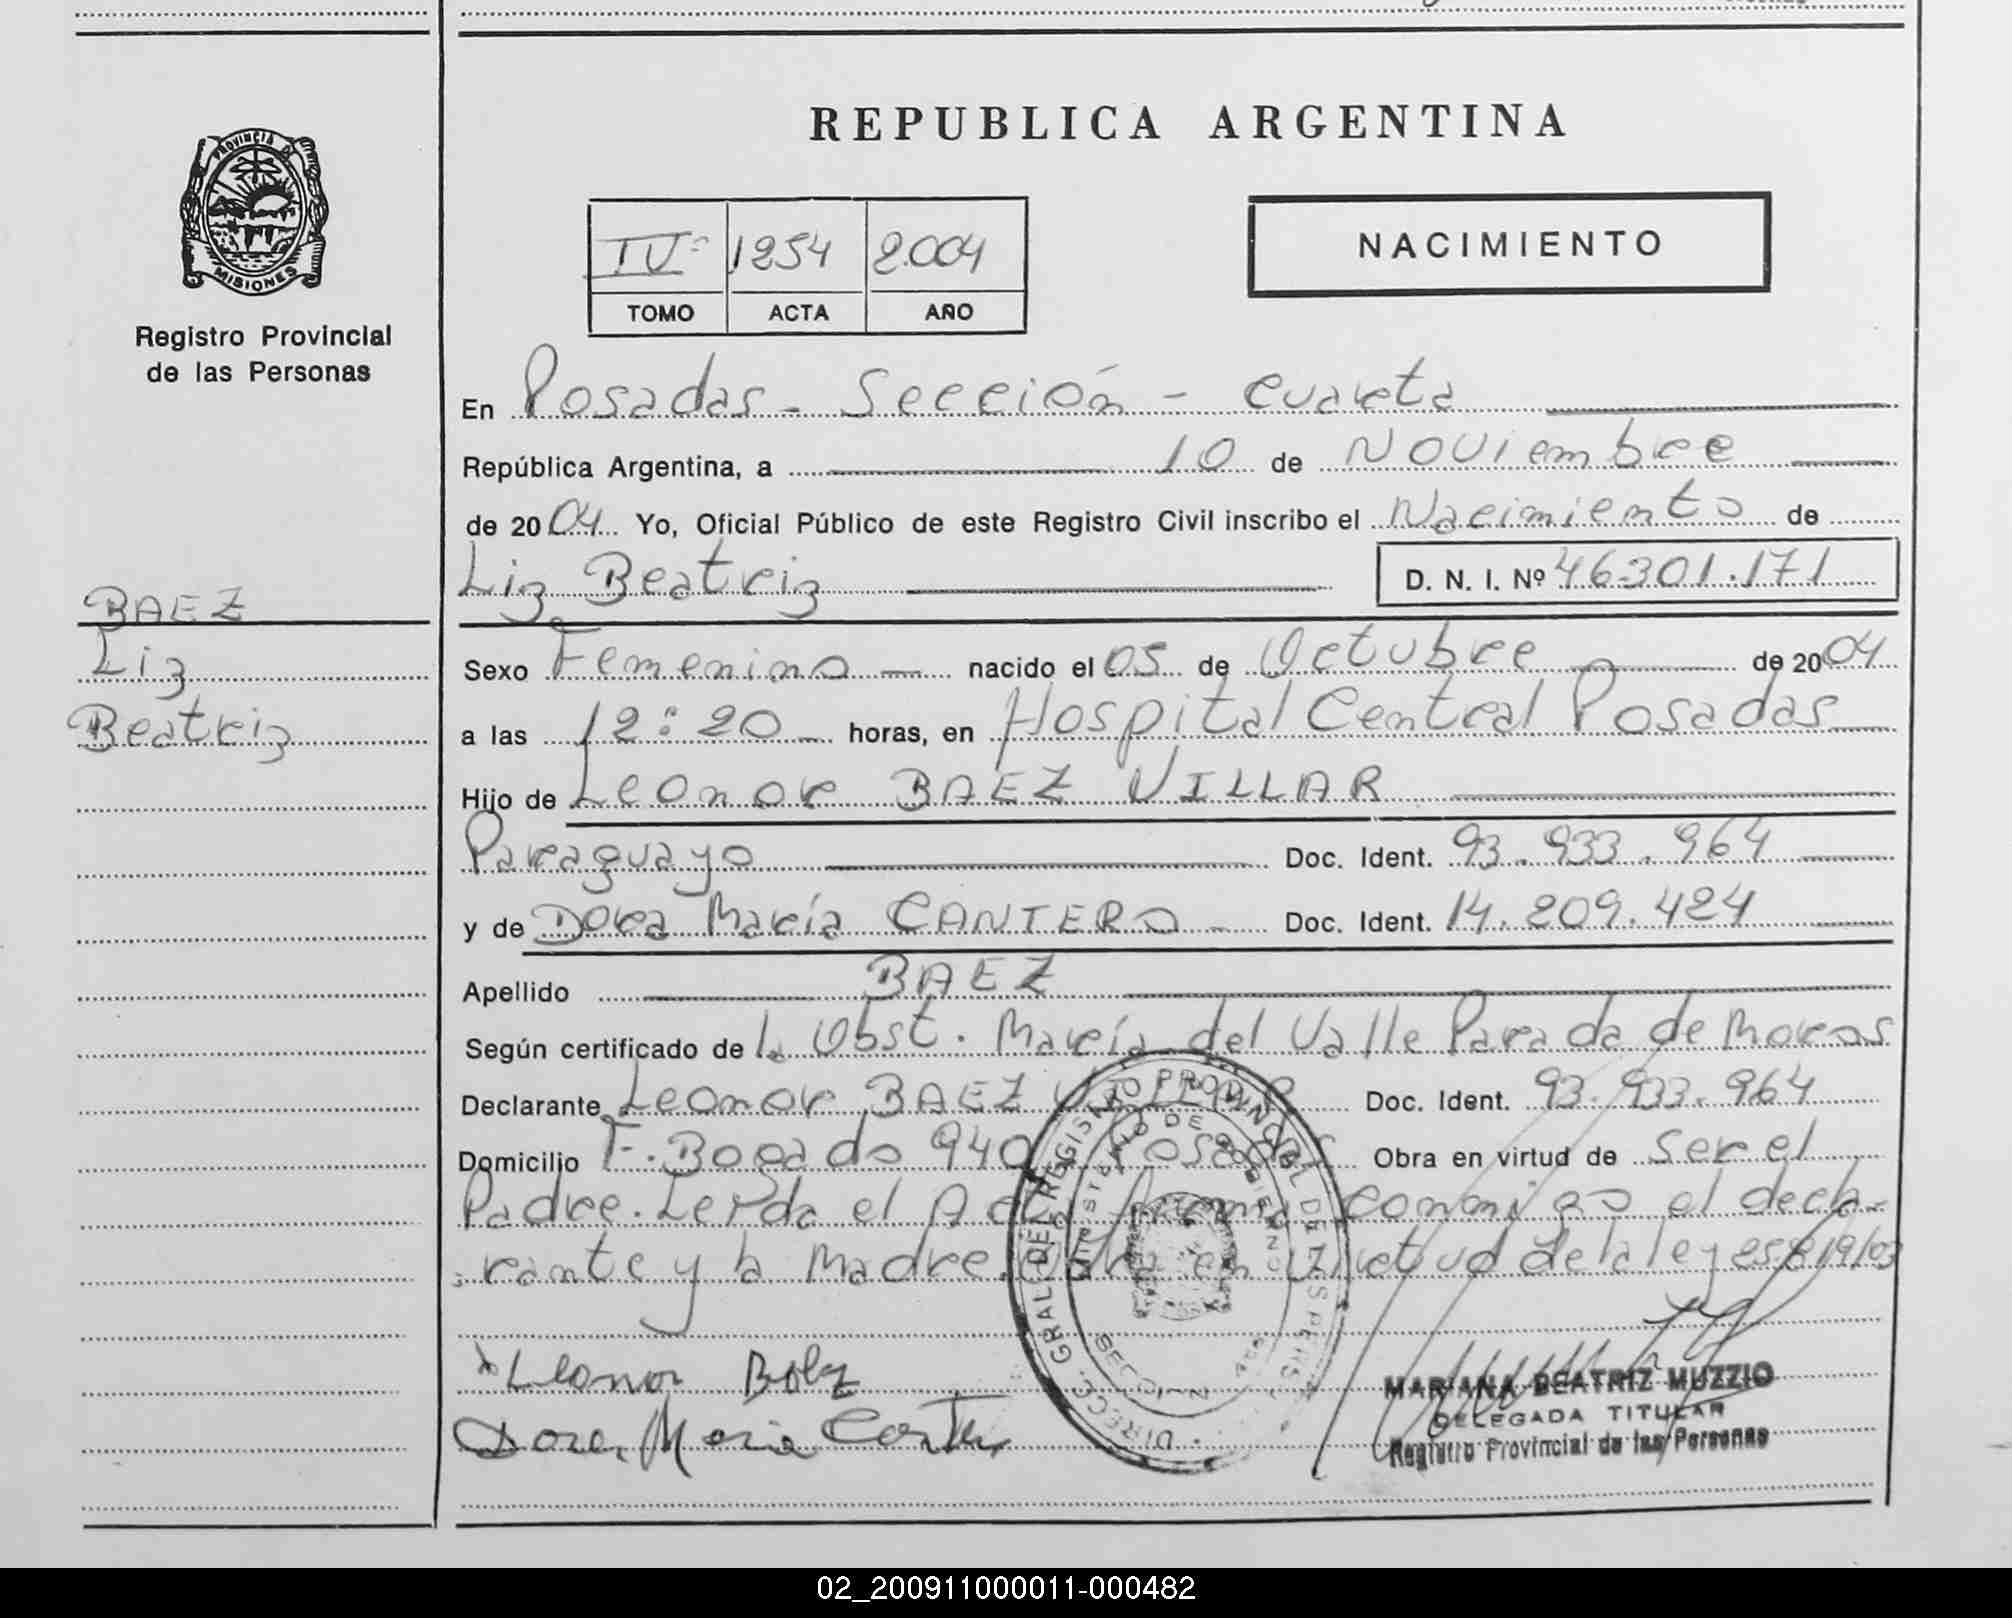 REPUBLICA ARGENTINA
PROVINCIA DE MISIONES
Registro Provincial
de las Personas
IVº 1254 2.004
TOMO ACTA AÑO
NACIMIENTO
En Posadas - Sección - Cuarta
República Argentina, a 10 de Noviembre
de 2004 Yo, Oficial Público de este Registro Civil inscribo el Nacimiento de
Liz Beatriz D. N. I. Nº 46.301.171
BAEZ
Liz
Beatriz
Sexo Femenino nacido el 05 de Octubre de 2004
a las 12:20 horas, en Hospital Central Posadas
Hijo de Leonor BAEZ VILLAR
Paraguayo Doc. Ident. 93.933.964
y de Dora María CANTERO Doc. Ident. 14.209.424
Apellido BAEZ
Según certificado de la Obst. María del Valle Parada de Moros
Declarante Leonor BAEZ VILLAR Doc. Ident. 93.933.964
Domicilio F. Bogado 940 Posadas Obra en virtud de ser el
Padre. Leída el Acta firma conmigo el decla-
rante y la Madre. Obra en virtud de la ley
Leonor Baez
Dora Maria Canter
DIRECC. GRAL DEL REGISTRO PROVINCIAL DE LAS PERS
MINISTERIO DE GOBIERNO
SECCION
MARIANA BEATRIZ MUZZIO
DELEGADA TITULAR
Registro Provincial de las Personas
02_200911000011-000482